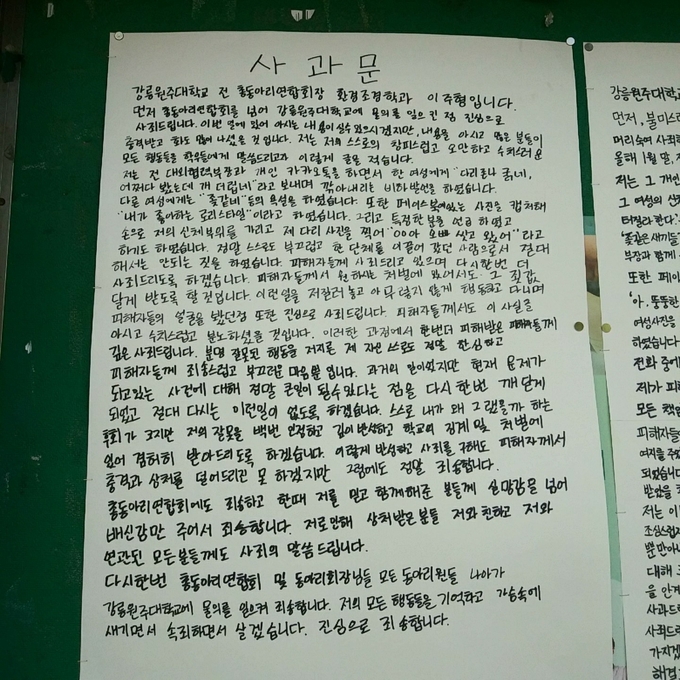 사과문
강릉원주대학교 전 총동아리연합회장 환경조경학과 이주형입니다.
먼저 총동아리연합회를 넘어 강릉원주대학교에 물의를 일으킨 점 진심으로
사죄드립니다. 이번 일에 있어 아시는 내용이실수 있으시겠지만, 내용을 아시고 많은 분들이
충격받고 화도 많이 나셨을 것 입니다. 저는 저의 스스로의 창피스럽고 오만하고 수치스러운
모든 행동들을 학우들에게 말씀드리고자 이렇게 글을 적습니다.
저는 전 대외협력부장과 개인 카카오톡을 하면서 한 여성에게 "다리로나 굵네,
어쩌다 봤는데 개 더럽네"라고 보내며 깎아내리는 비하발언을 하였습니다.
다른 여성에게는 "꽃같네"등의 욕설을 하였습니다. 또한 페이스북에있는 사진을 캡쳐해
"내가 좋아하는 로리스타일"이라고 하였습니다. 그리고 특정한분을 언급하였고
손으로 저의 신체부위를 가리고 제 다리 사진을 찍어 "00아 오빠 씻고 왔어"라고
하기도 하였습니다. 정말 스스로도 부끄럽고 한 단체를 이끌어 갔던 사람으로서 절대
해서는 안되는 짓을 하였습니다. 피해자들께 사죄드리고 있으며 다시한번 더
사죄드리도록 하겠습니다. 피해자들께서 원하시는 처벌에 있어서도 그 죗값
달게 받도록 할 것입니다. 이런일을 저질러 놓고 아무렇지 않게 행동하고 다니며
피해자들의 얼굴을 봤던점 또한 진심으로 사죄드립니다. 피해자들께서도 이 사실을
아시고 수치스럽고 분노하셨을 것입니다. 이러한 과정에서 한번더 피해받은 피해자들께
깊은 사죄드립니다. 분명 잘못된 행동을 저지른 제 자신 스스로도 정말 한심하고
피해자들께 죄송스럽고 부끄러운 마음뿐 입니다. 과거의 일이었지만 현재 문제가
되고있는 사건에 대해 정말 큰일이 될수있다는 점을 다시한번 깨닫게
되었고 절대 다시는 이런일이 없도록 하겠습니다. 스스로 내가 왜 그랬을까 하는
후회가 크지만 저의 잘못을 백번 인정하고 깊이반성하고 학교의 징계 및 처벌에
있어 겸허히 받아드리도록 하겠습니다. 이렇게 반성하고 사죄를 구해도 피해자께서
충격과 상처를 덜어드리고 못 하겠지만 그럼에도 정말 죄송합니다.
총동아리연합회에도 죄송하고 한때 저를 믿고 함께해준 분들께 실망감을 넘어
배신감만 주어서 죄송합니다. 저로인해 상처받은분들 저와친하고 저와
연관된 모든분들께도 사죄의 말씀드립니다.
다시한번 총동아리연합회 및 동아리회장님들 모든 동아리원들 나아가
강릉원주대학교에 물의를 일으켜 죄송합니다. 저의 모든 행동들을 기억하고 가슴속에
새기면서 속죄하면서 살겠습니다. 진심으로 죄송합니다.
강릉원주대학교
먼저, 불미스러
머리숙여 사죄
올해 1월 말,
저는 그 개인
그 여성의 신
터질라 한다'
'꽃같은 새끼들
부장과 함께
또한 페이
'아, 뚱뚱한
여성사진을
하였습니다
전화 중에
제가 피
모든 책임
피해자들
여지를 주
되었습니다
받았을
저는 이
조심스럽
뿐만아니
대해
을 안겨
사과드
사죄드
가지겠
해결